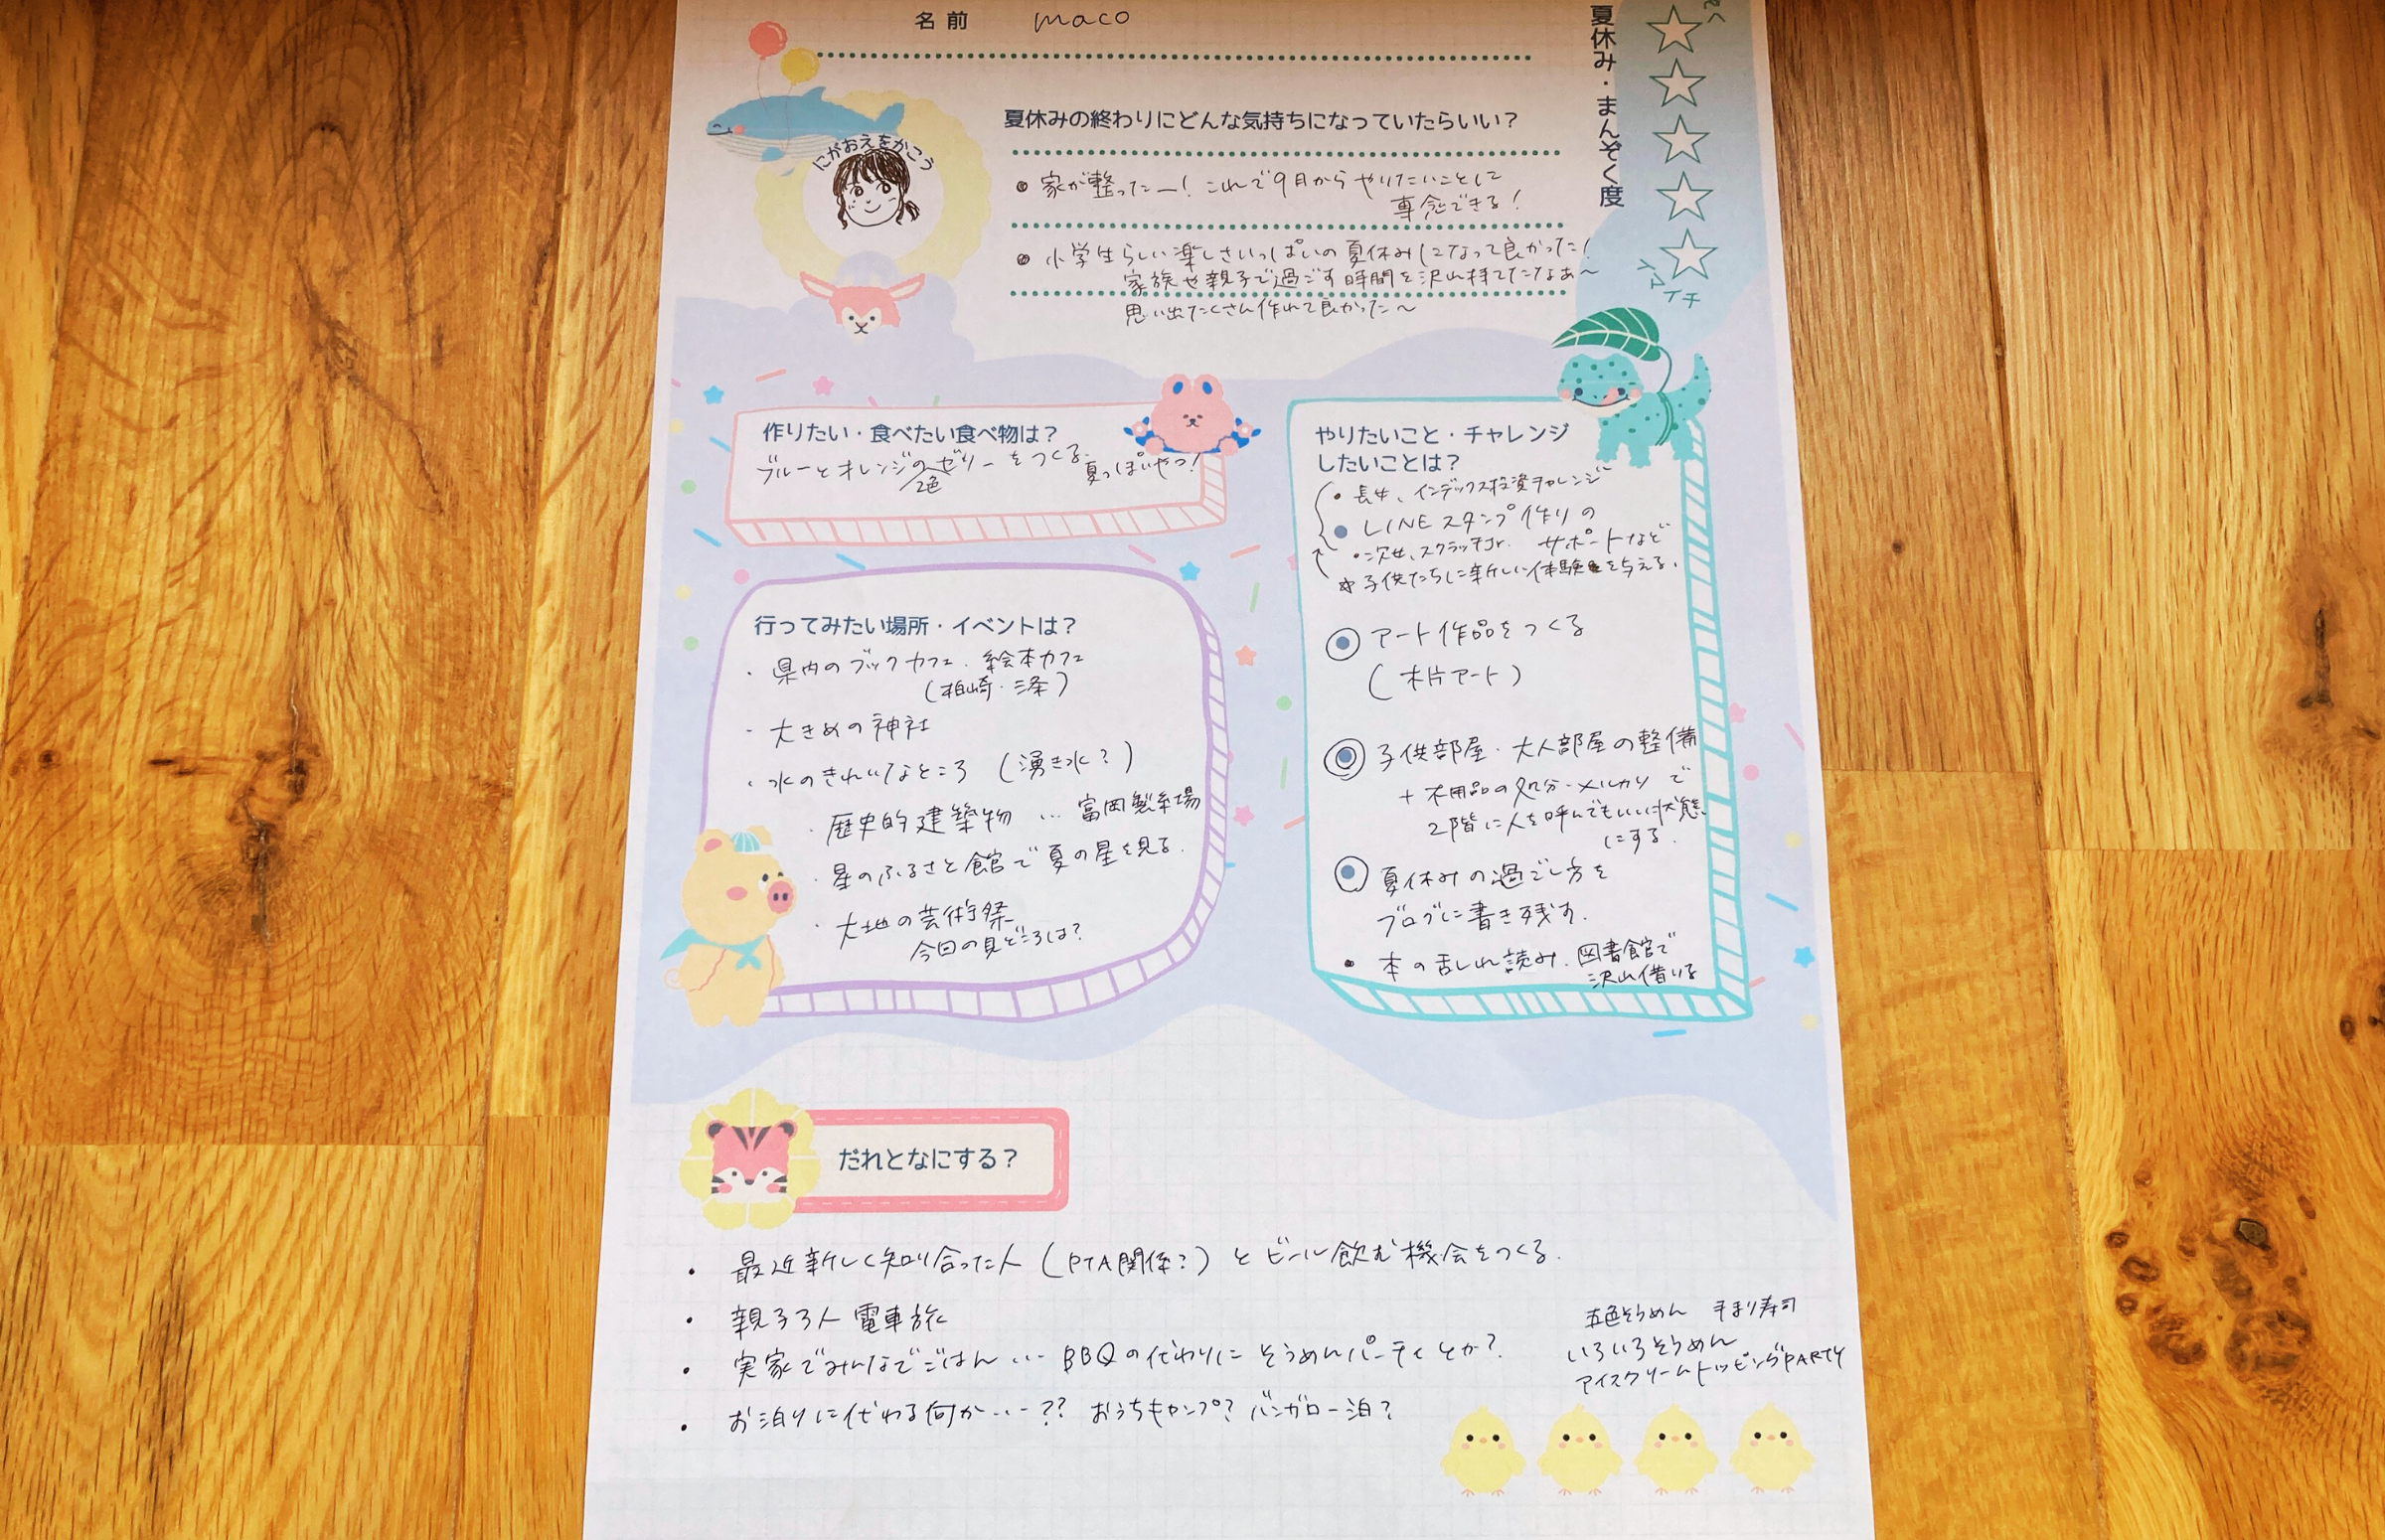 名前 maco
夏休み・まんぞく度
イマイチ
にがおえをかこう
夏休みの終わりにどんな気持ちになっていたらいい？
● 家が整ったー！これで9月からやりたいことして
専念できる！
● 小学生らしい楽しさいっぱいの夏休みになって良かった！
家族や親子で過ごす時間を沢山持てたなぁ〜
思い出たくさん作れて良かった〜
作りたい・食べたい食べ物は？
ブルーとオレンジのゼリーをつくる。
2色
夏っぽいやつ！
行ってみたい場所・イベントは？
・県内のブックカフェ、絵本カフェ
（柏崎・三条）
・大きめの神社
・水のきれいなところ（湧き水？）
・歴史的建築物 … 富岡製糸場
・星のふるさと館で夏の星を見る。
・大地の芸術祭
今回の見どころは？
やりたいこと・チャレンジ
したいことは？
・長女、インデックス投資チャレンジ
● LINEスタンプ作りの
・二次女、スクラッチJr. サポートなど
☆子供たちに新しい体験を与える。
◉ アート作品をつくる
（木片アート）
◉ 子供部屋・大人部屋の整備
＋不用品の処分・メルカリで
2階に人を呼んでもいい状態
にする。
◉ 夏休みの過ごし方を
ブログに書き残す。
• 本の乱れ読み。図書館で
沢山借りる
だれとなにする？
・最近新しく知り合った人（PTA関係？）とビール飲む機会をつくる。
・親子3人電車旅
・実家でみんなでごはん … BBQの代わりにそうめんパーティとか？
・お泊りに代わる何か…？？ おうちキャンプ？バンガロー泊？
五色そうめん 手まり寿司
いろいろそうめん
アイスクリームトッピングPARTY